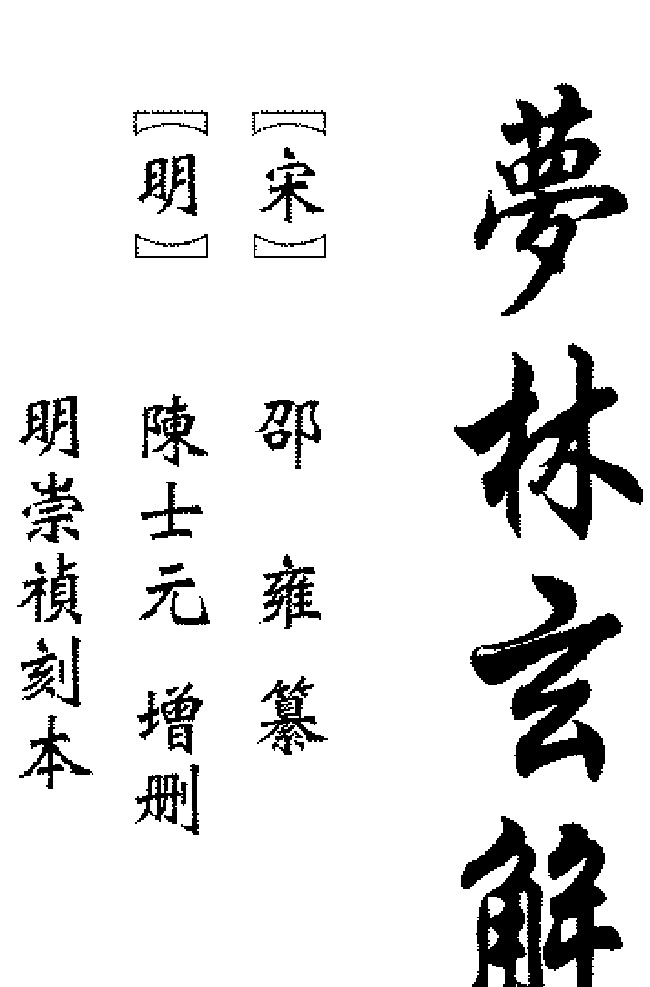 夢林玄解
〔宋〕邵雍纂
〔明〕陳士元增删
明崇禎刻本